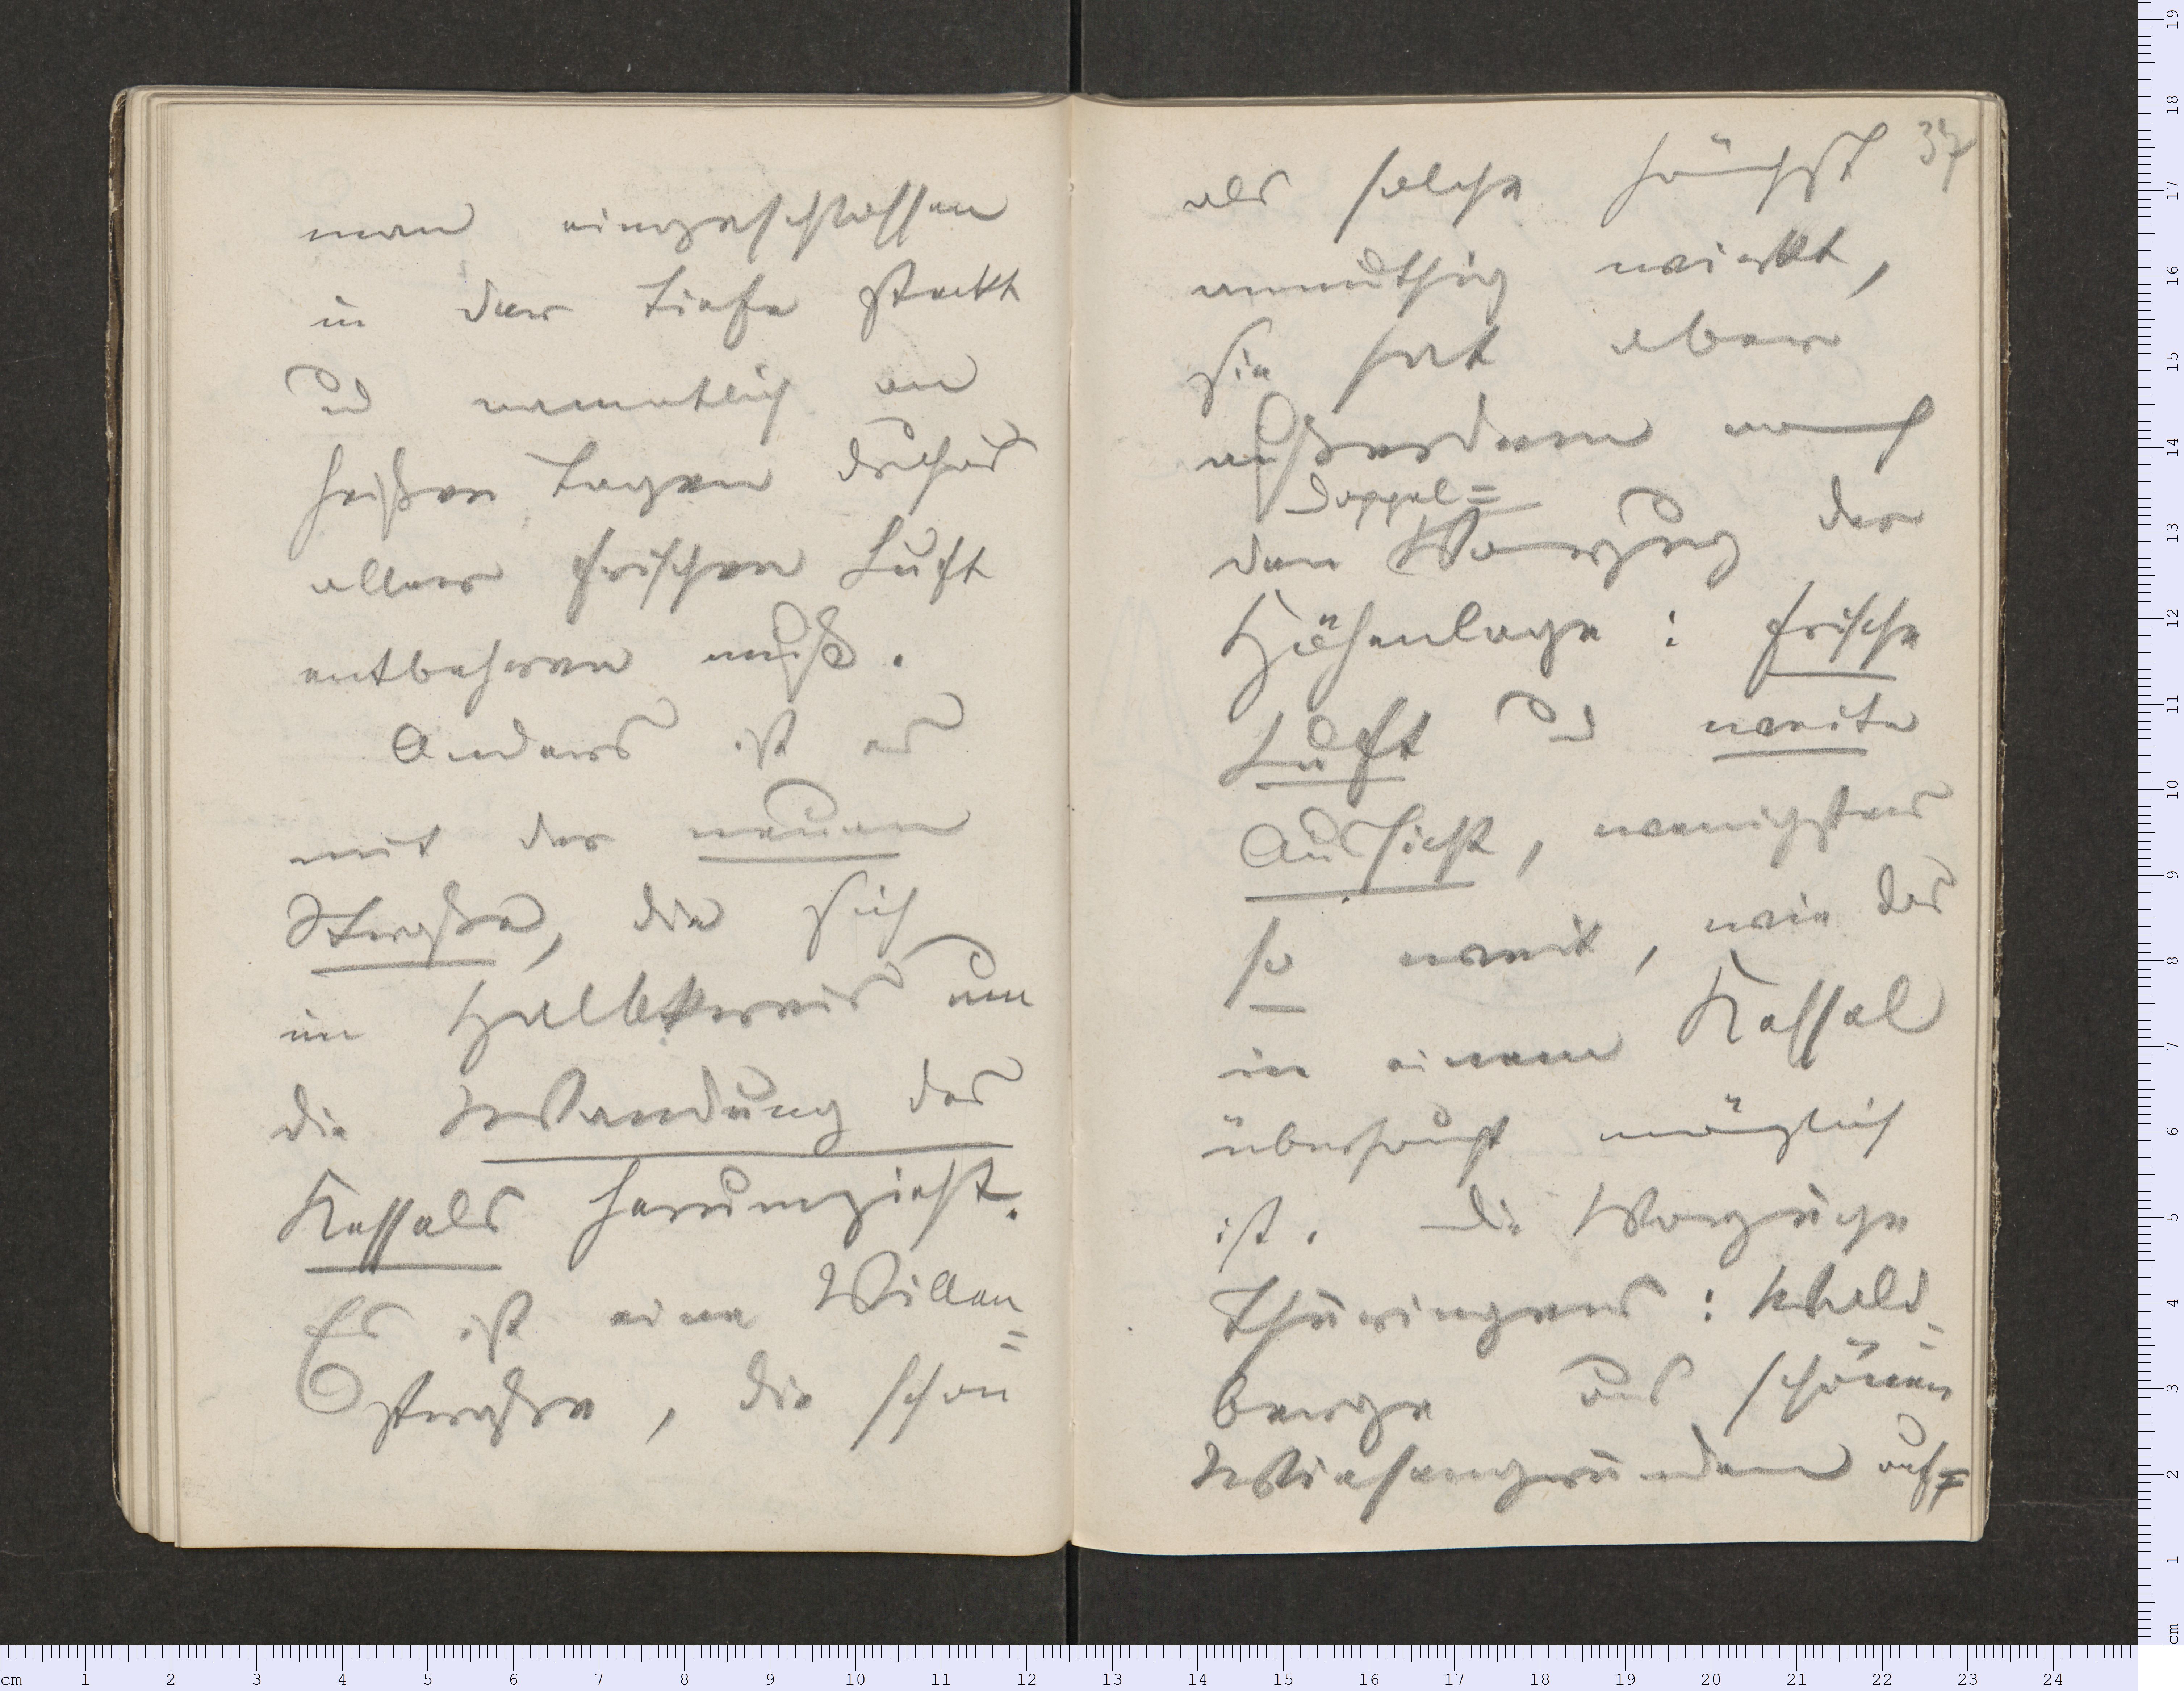 man eingeschlossen
in der Tiefe steckt
und namentlich an
heißen Tagen
aller frischen Luft
entbehren muß.
Anders ist es
mit der neuen
Straße, die sich
im Halbkreis um
die Wandung des
Kessels herumzieht.
Es ist eine Villen=
straße, die schon
37
als solche höchst
anmuthig wirkt,
sie hat aber
außerdem noch
Doppel=
den Vorzug der
Höhenlage: frische
Luft und weite
Aussicht, wenigstens
so weit, wie das
in einem Kessel
überhaupt möglich
ist. Die Vorzüge
Thüringens: Wald=
berge aus schönen
Wiesengründen auf=